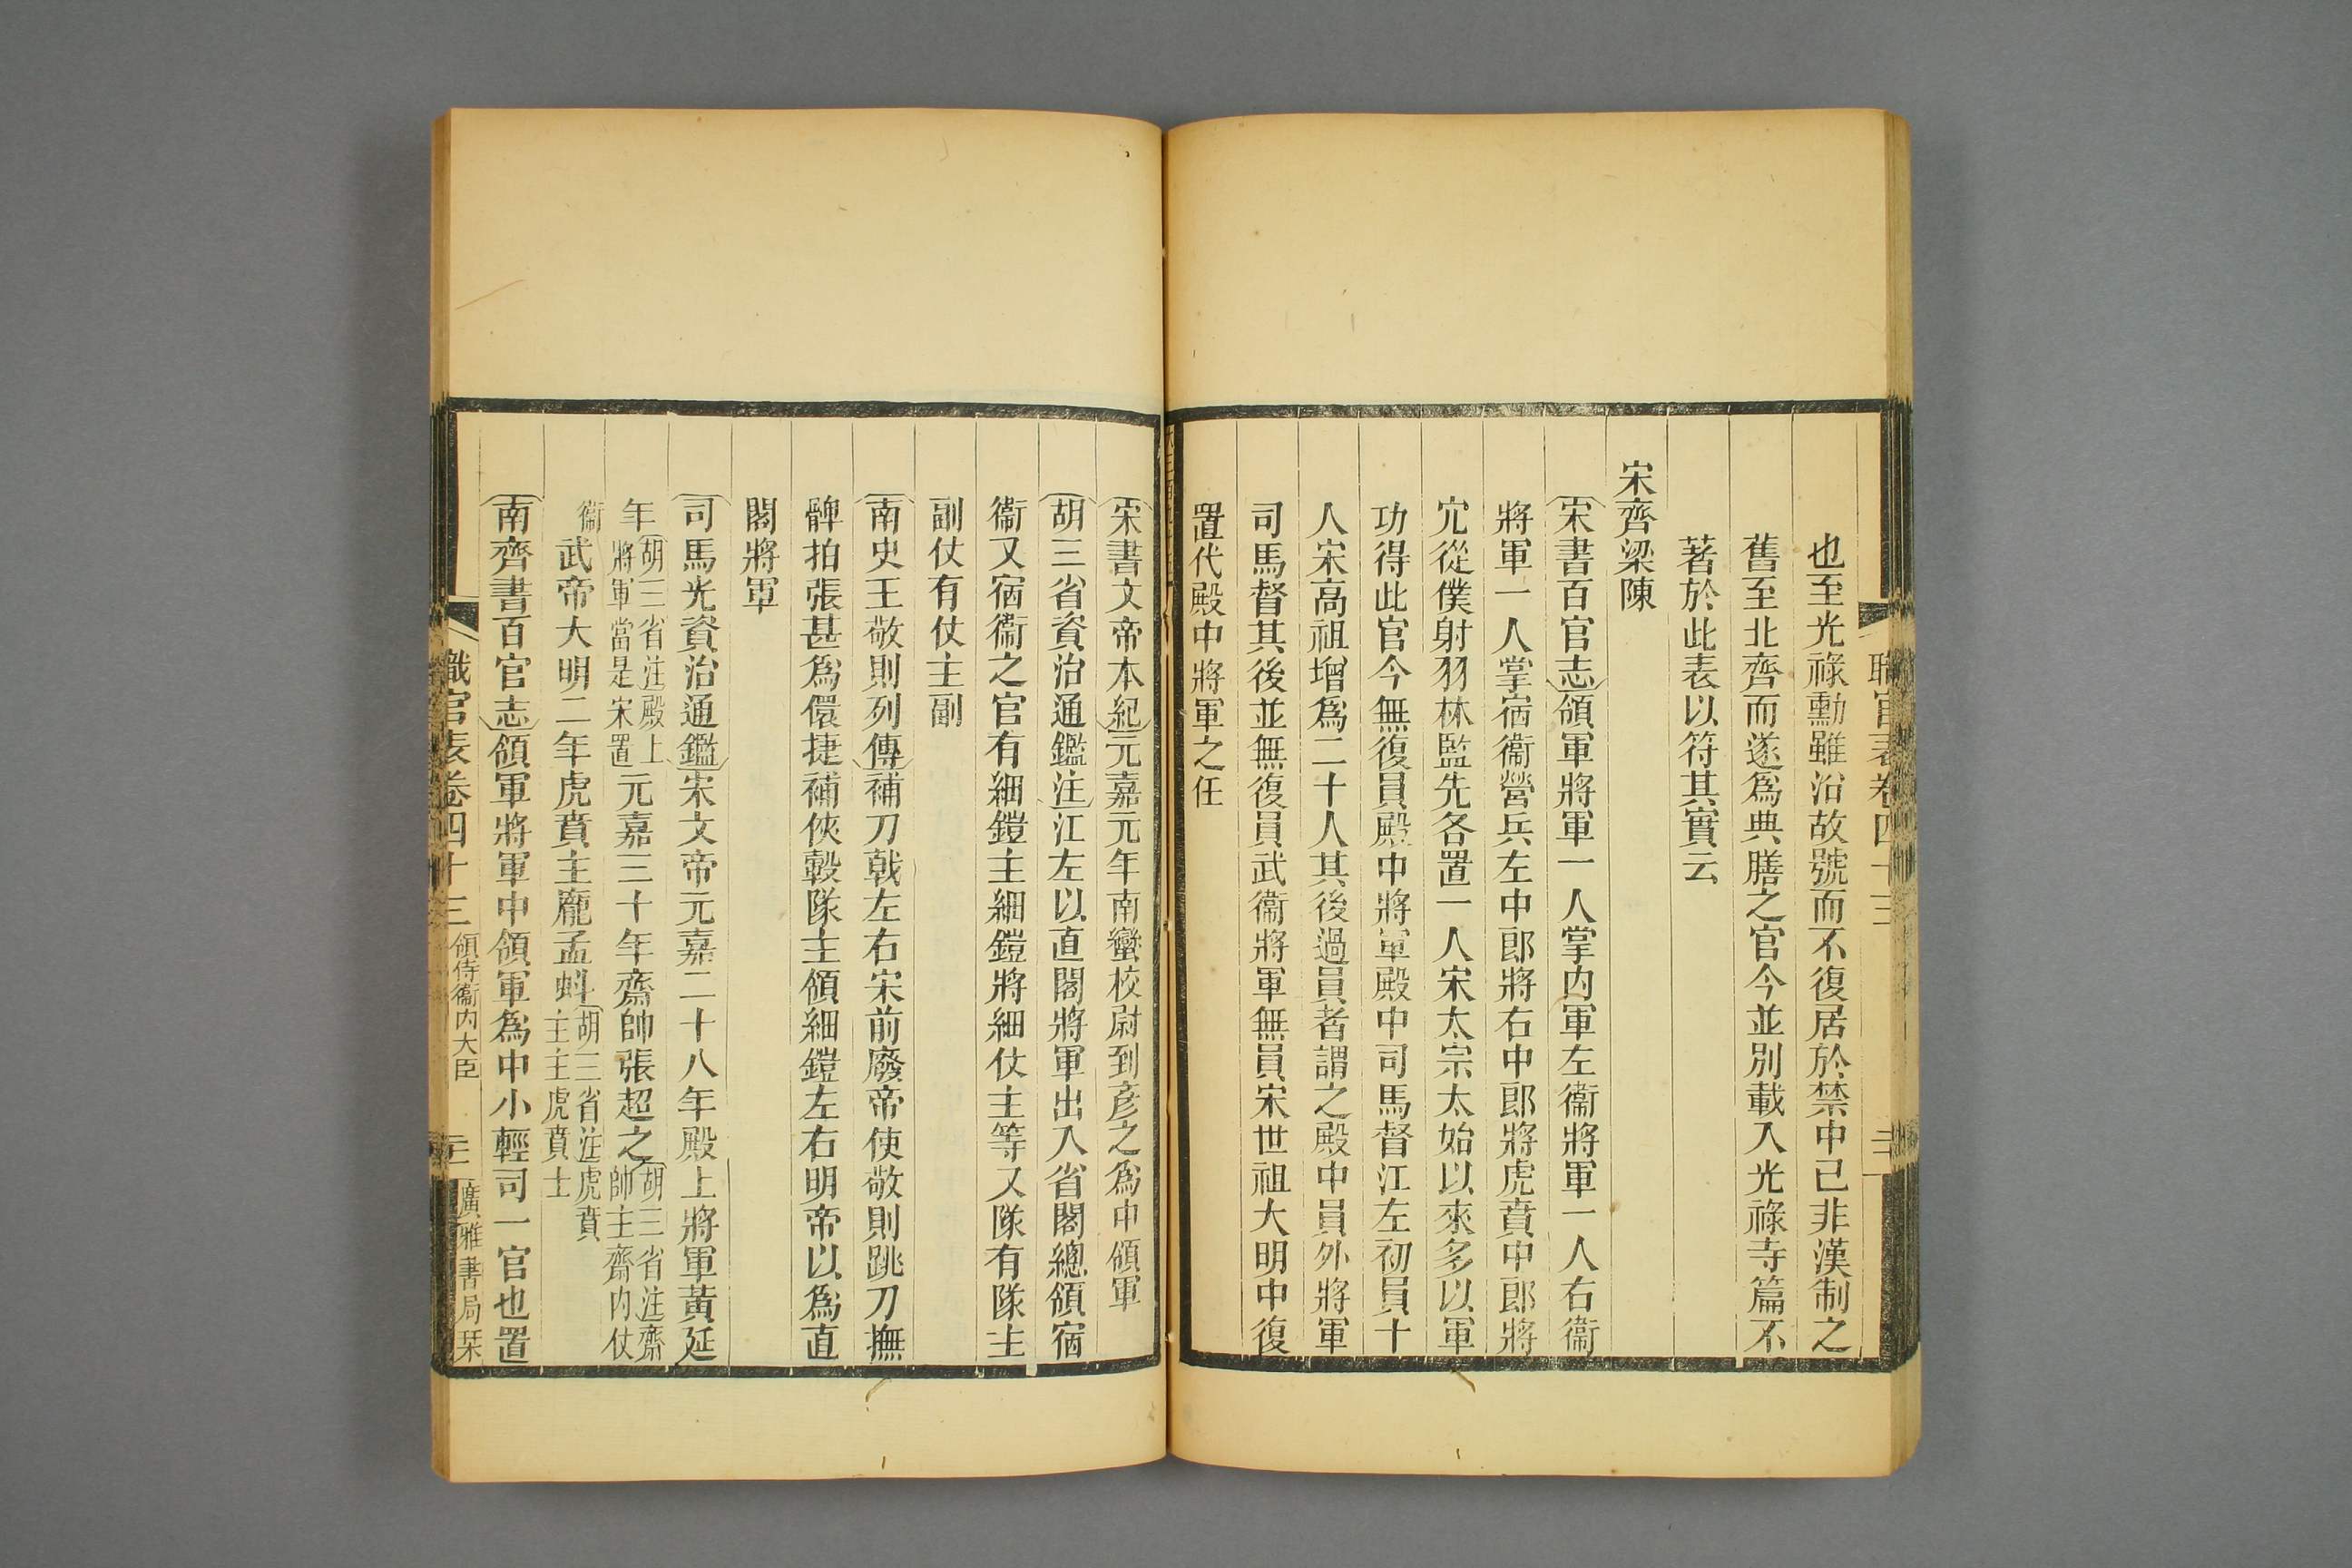 職官表卷四十三
也至光祿勳雖沿故號而不復居於禁中已非漢制之
舊至北齊而遂爲典膳之官今並別載入光祿寺篇不
著於此表以符其實云
宋齊梁陳
宋書百官志領軍將軍一人掌內軍左衞將軍一人右衞
將軍一人掌宿衞營兵左中郎將右中郎將虎賁中郎將
宂從僕射羽林監先各置一人宋太宗太始以來多以軍
功得此官今無復員殿中將軍殿中司馬督江左初員十
人宋高祖增爲二十人其後過員者謂之殿中員外將軍
司馬督其後並無復員武衞將軍無員宋世祖大明中復
置代殿中將軍之任
宋書文帝本紀元嘉元年南蠻校尉到彥之爲中領軍
胡三省資治通鑑注江左以直閤將軍出入省閤總領宿
衞又宿衞之官有細鎧主細鎧將細仗主等又隊有隊主
副仗有仗主副
南史王敬則列傳補刀戟左右宋前廢帝使敬則跳刀撫
髀拍張甚爲儇捷補俠轂隊主領細鎧左右明帝以爲直
閤將軍
司馬光資治通鑑宋文帝元嘉二十八年殿上將軍黃延
年胡三省注殿上將軍當是宋置元嘉三十年齋帥張超之胡三省注齋帥主齋內仗
衞武帝大明二年虎賁主龐孟蚪胡三省注虎賁主主虎賁士
南齊書百官志領軍將軍中領軍爲中小輕司一官也置
職官表卷四十三 領侍衞內大臣 廣雅書局栞